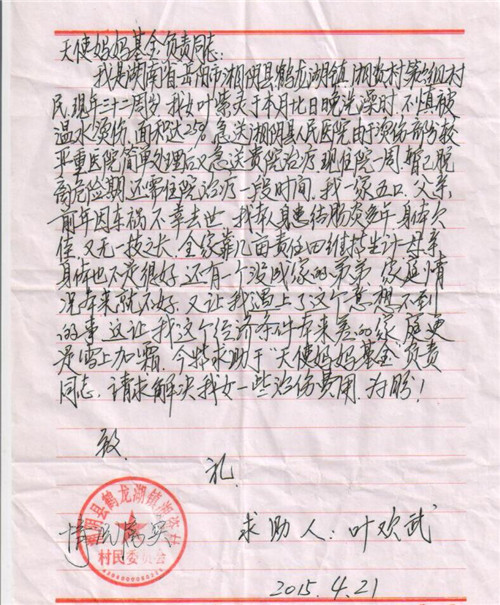 天使妈妈基金负责同志:
我是湖南省岳阳市湘阴县鹤龙湖镇湘 村第 组村
民,现年二十二周岁,我女叶紫 于本月 日晚洗澡时,不慎被
温水烫伤,面积达28%,急送湘阴县人民医院,由于烫伤部分较
严重医院简单处理后又急送贵院治疗,现住院一周,暂已脱
离危险期,还需住院治疗一段时间,我一家五口,父亲
前年因车祸不幸去世,我本人患结肠炎多年,身体欠
佳,又无一技之长,全家靠几亩责任田维持生计,母亲
身体也不是很好,还有一个没成家的弟弟,家庭情
况本来就不好,又让我遇上了这个意想不到
的事,这让我这个经济条件本来差的家庭更
是雪上加霜,今特求助于"天使妈妈基金"负责
同志,请求解决我女一些治伤费用,为盼!
致
礼
情况属实
湘阴县鹤龙湖镇湘 村
村民委员会
求助人:叶欢武
2015.4.21